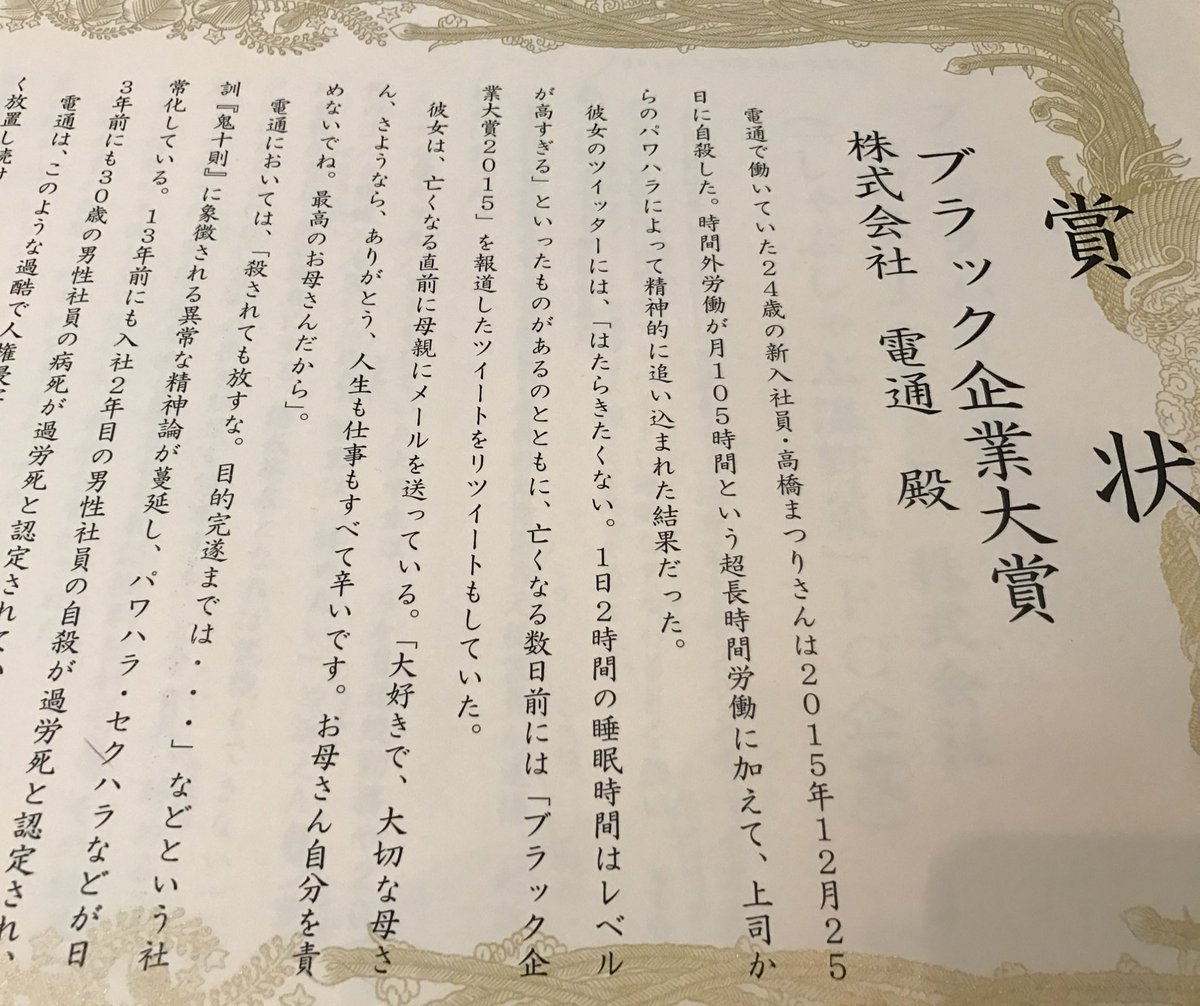 賞状
ブラック企業大賞
株式会社 電通 殿
電通で働いていた24歳の新入社員・高橋まつりさんは2015年12月25
日に自殺した。時間外労働が月105時間という超長時間労働に加えて、上司か
らのパワハラによって精神的に追い込まれた結果だった。
彼女のツイッターには、「はたらきたくない。1日2時間の睡眠時間はレベル
が高すぎる」といったものがあるのとともに、亡くなる数日前には「ブラック企
業大賞2015」を報道したツイートをリツイートもしていた。
彼女は、亡くなる直前に母親にメールを送っている。「大好きで、大切な母さ
ん、さようなら、ありがとう、人生も仕事もすべて辛いです。お母さん自分を責
めないでね。最高のお母さんだから」。
電通においては、「殺されても放すな。目的完遂までは・・・」などという社
訓『鬼十則』に象徴される異常な精神論が蔓延し、パワハラ・セクハラなどが日
常化している。13年前にも入社2年目の男性社員の自殺が過労死と認定され、
3年前にも30歳の男性社員の病死が過労死と認定されてい
電通は、このような過酷で人権侵害
く放置し続け